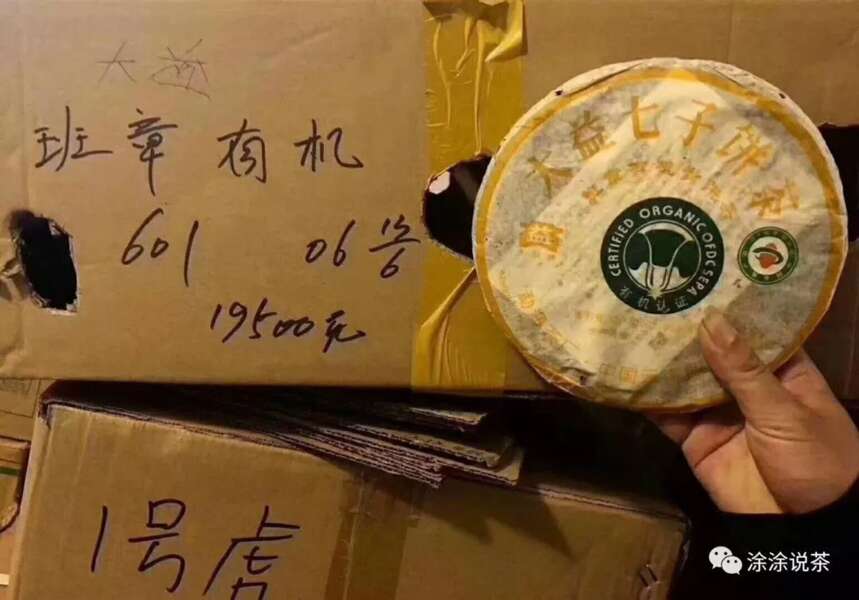 大益
班章有机
601 06 12/6
19500元
1号虎
大益七子饼茶
CERTIFIED ORGANIC OFDC SEPA
有机认证
涂涂说茶